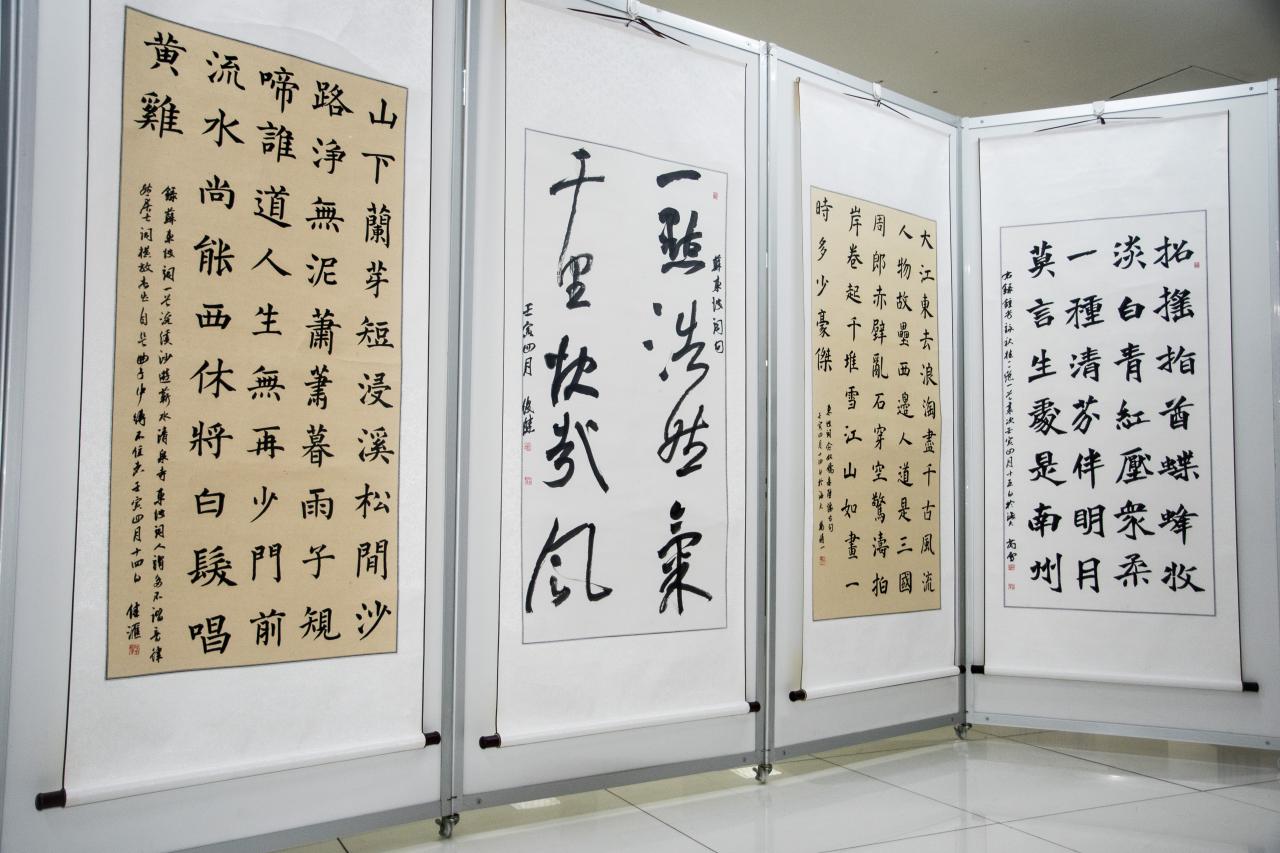 山下蘭芽短浸溪松間沙
路淨無泥蕭蕭暮雨子規
啼誰道人生無再少門前
流水尚能西休將白髮唱
黄雞
錄蘇東坡詞一首浣溪沙遊蘄水清泉寺東坡詞人謂多不諧音律
然居士詞橫放杰出自是曲子中縛不住者壬寅四月十四日
蘇東坡詞句
一點浩然氣
千里快哉風
壬寅四月
大江東去浪淘盡千古風流
人物故壘西邊人道是三國
周郎赤壁亂石穿空驚濤拍
岸卷起千堆雪江山如畫一
時多少豪傑
壬寅四月十四日於海大
招搖指酋蝶蜂收
淡白青紅壓衆柔
一種清芬伴明月
莫言生處是南州